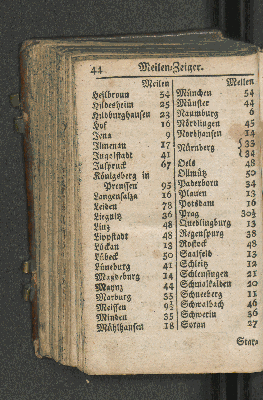 44 Meilen-Zeiger.
Meilen
Heilbronn 54
Hildesheim 25
Hildburghausen 23
Hof 16
Jena 9
Ilmenau 17
Ingolstadt 41
Inspruck 67
Königsberg in
Preussen 95
Langensalza 16
Leiden 78
Liegnitz 36
Linz 48
Lippstadt 48
Löckan 13
Lübeck 50
Lüneburg 41
Magdeburg 14
Maynz 44
Marburg 35
Meissen 9½
Minden 35
Mühlhausen 18
Meilen
München 54
Münster 44
Naumburg 6
Nördlingen 45
Nordhausen 14
Nürnberg {33
{34
Oels 48
Ollmütz 50
Paderborn 34
Plauen 13
Potsdam 16
Prag 30½
Quedlingburg 13
Regenspurg 38
Rostock 48
Saalfeld 13
Schleitz 12
Schleusingen 21
Schmalkalden 20
Schneeberg 11
Schwalbach 46
Schwerin 36
Sorau 27